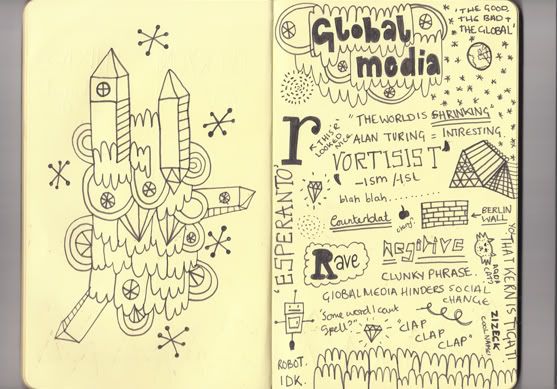 Global
media
'THE GOOD,
THE BAD +
THE GLOBAL'
r
"THE WORLD IS SHRINKING"
←THIS R
LOOKED NICE
ALAN TURING = INTRESTING.
'VORTISIST'
-ISM /IST
blah blah........
'ESPERANTO'
Counterblat
← BERLIN
WALL
Rave
Negitive
YO THAT KERN IS TIGHT!
CLUNKY PHRASE.
GLOBAL MEDIA HINDERS SOCIAL
CHANGE
"Some word I cant
Spell?"
"CLAP
CLAP
CLAP"
ZIZECK
COOL NAME!
ROBOT.
IDK.